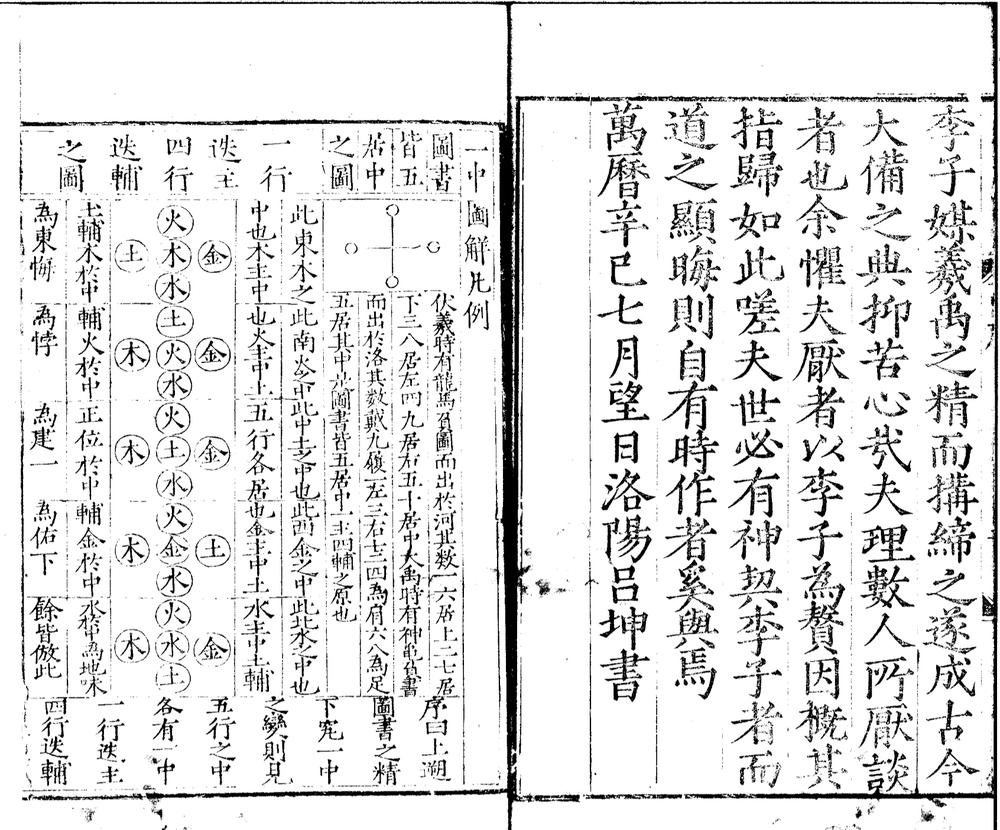 李子媒羲禹之精而搆締之遂成古今
大備之典抑苦心哉夫理數人所厭談
者也余懼夫厭者以李子為贅因概其
指歸如此嗟夫世必有神契李子者而
道之顯晦則自有時作者奚與焉
萬曆辛巳七月望日洛陽呂坤書
一中圖解凡例
圖書
皆五
居中
之圖
伏羲時有龍馬負圖而出於河其數一六居上二七居
下三八居左四九居右五十居中大禹時有神龜負書
而出於洛其數戴九履一左三右七二四為肩六八為足
五居其中是圖書皆五居中一主四輔之原也
一行
迭主
四行
迭輔
之圖
此東木之
中也木主中
土輔木於中
為東悔
火木水
金
土
此南火之中
也火主中土
輔火於中
為悖
土火水
金
木
此中土之中也
五行各居也
正位於中
為建一
火土水
金
木
此西金之中
金主中土
輔金於中
為佑下
火金水
土
木
此北水之中也
水主中土輔
水於中為地味
餘皆倣此
火水土
金
木
序曰上遡
圖書之精
下究一中
之變則見
五行之中
各有一中
一行迭主
四行迭輔